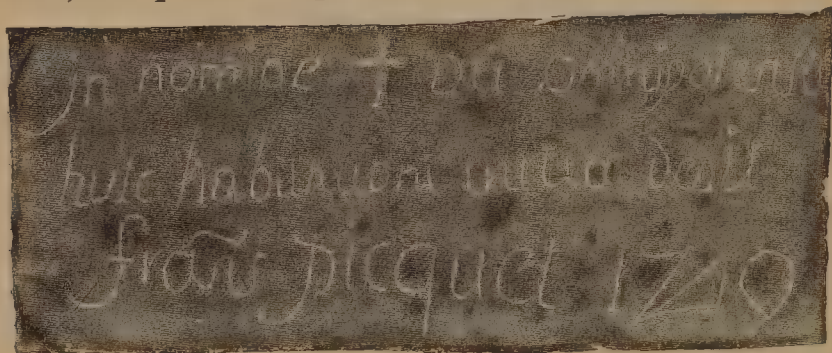 in nomine † Dei omnipotentis
huic habitationi initia dedit
frans picquet 1749